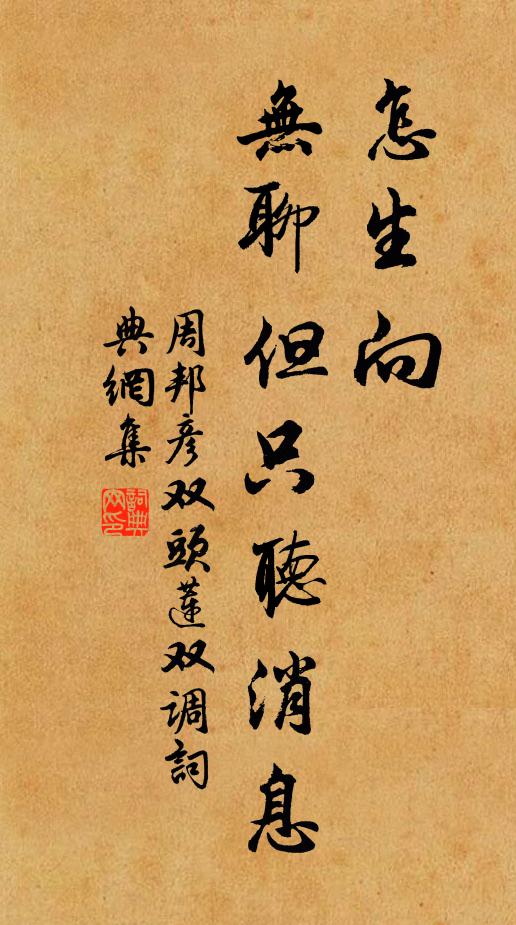 怎生向
無聊但只聽消息
周邦彦双頭蓮双调詞
典網集
詞典网印